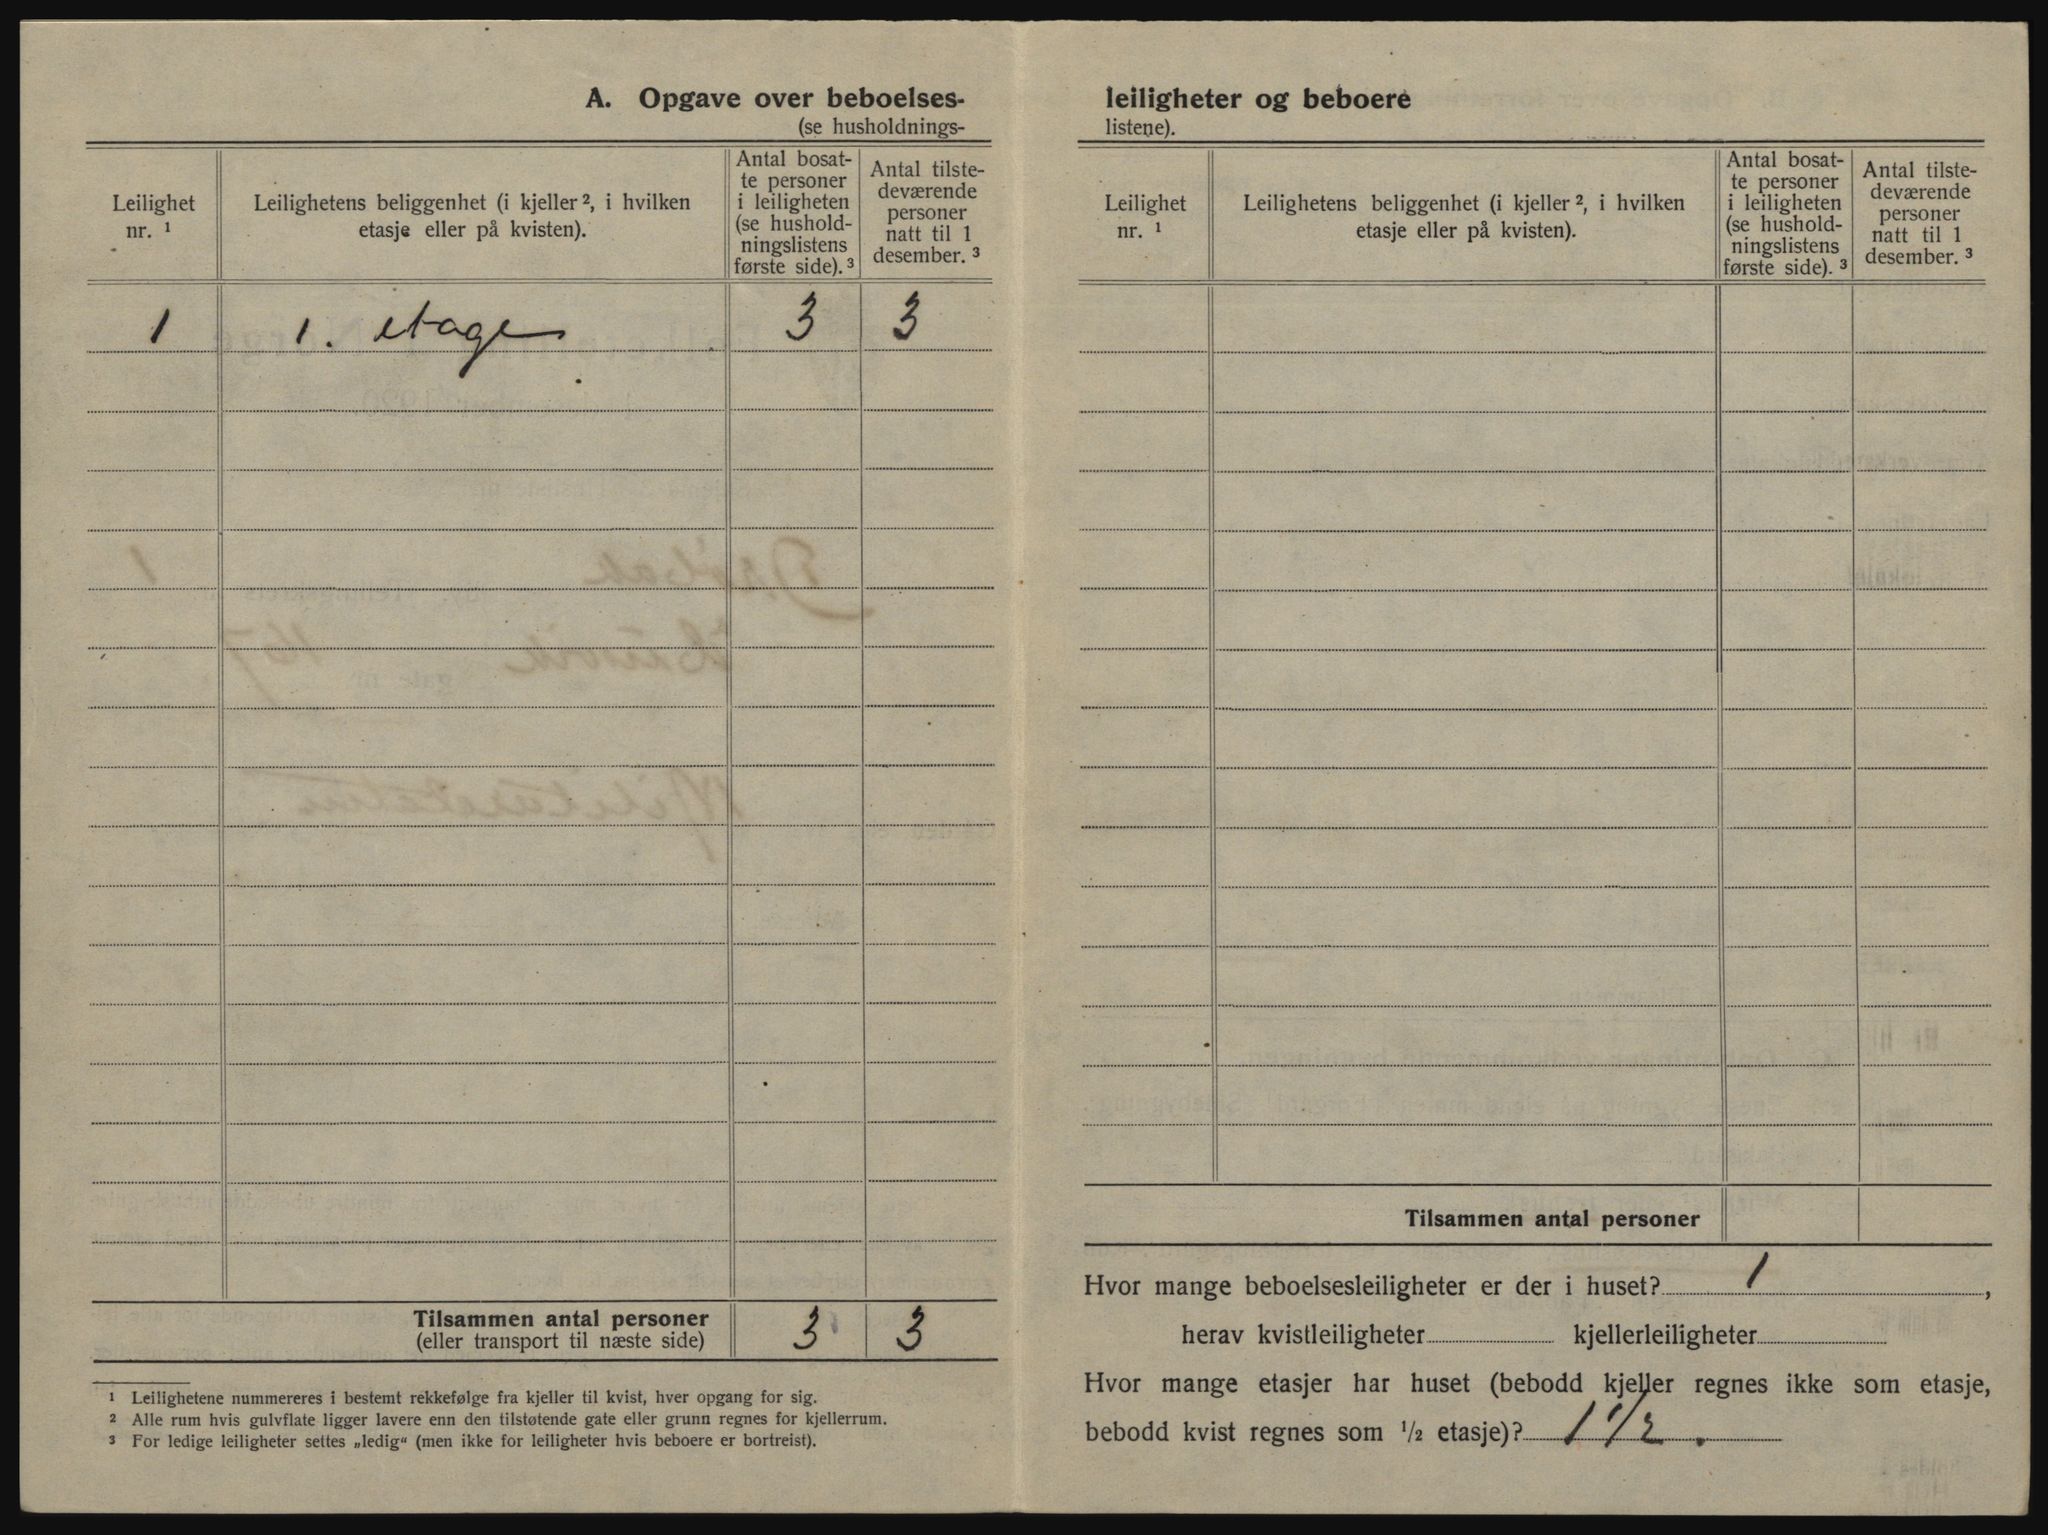 A. Opgave over beboelses-
(se husholdnings-
Leilighet
nr. ¹
Leilighetens beliggenhet (i kjeller ², i hvilken
etasje eller på kvisten).
Antal bosat-
te personer
i leiligheten
(se hushold-
ningslistens
første side). ³
Antal tilste-
deværende
personer
natt til 1
desember. ³
1 1. etage 3 3
Tilsammen antal personer
(eller transport til næste side)
3 3
¹ Leilighetene nummereres i bestemt rekkefølge fra kjeller til kvist, hver opgang for sig.
² Alle rum hvis gulvflate ligger lavere enn den tilstøtende gate eller grunn regnes for kjellerrum.
³ For ledige leiligheter settes „ledig“ (men ikke for leiligheter hvis beboere er bortreist).
leiligheter og beboere
listene).
Leilighet
nr. ¹
Leilighetens beliggenhet (i kjeller ², i hvilken
etasje eller på kvisten).
Antal bosat-
te personer
i leiligheten
(se hushold-
ningslistens
første side). ³
Antal tilste-
deværende
personer
natt til 1
desember. ³
Tilsammen antal personer
Hvor mange beboelsesleiligheter er der i huset? 1,
herav kvistleiligheter kjellerleiligheter
Hvor mange etasjer har huset (bebodd kjeller regnes ikke som etasje,
bebodd kvist regnes som ½ etasje)? 1 1/2.